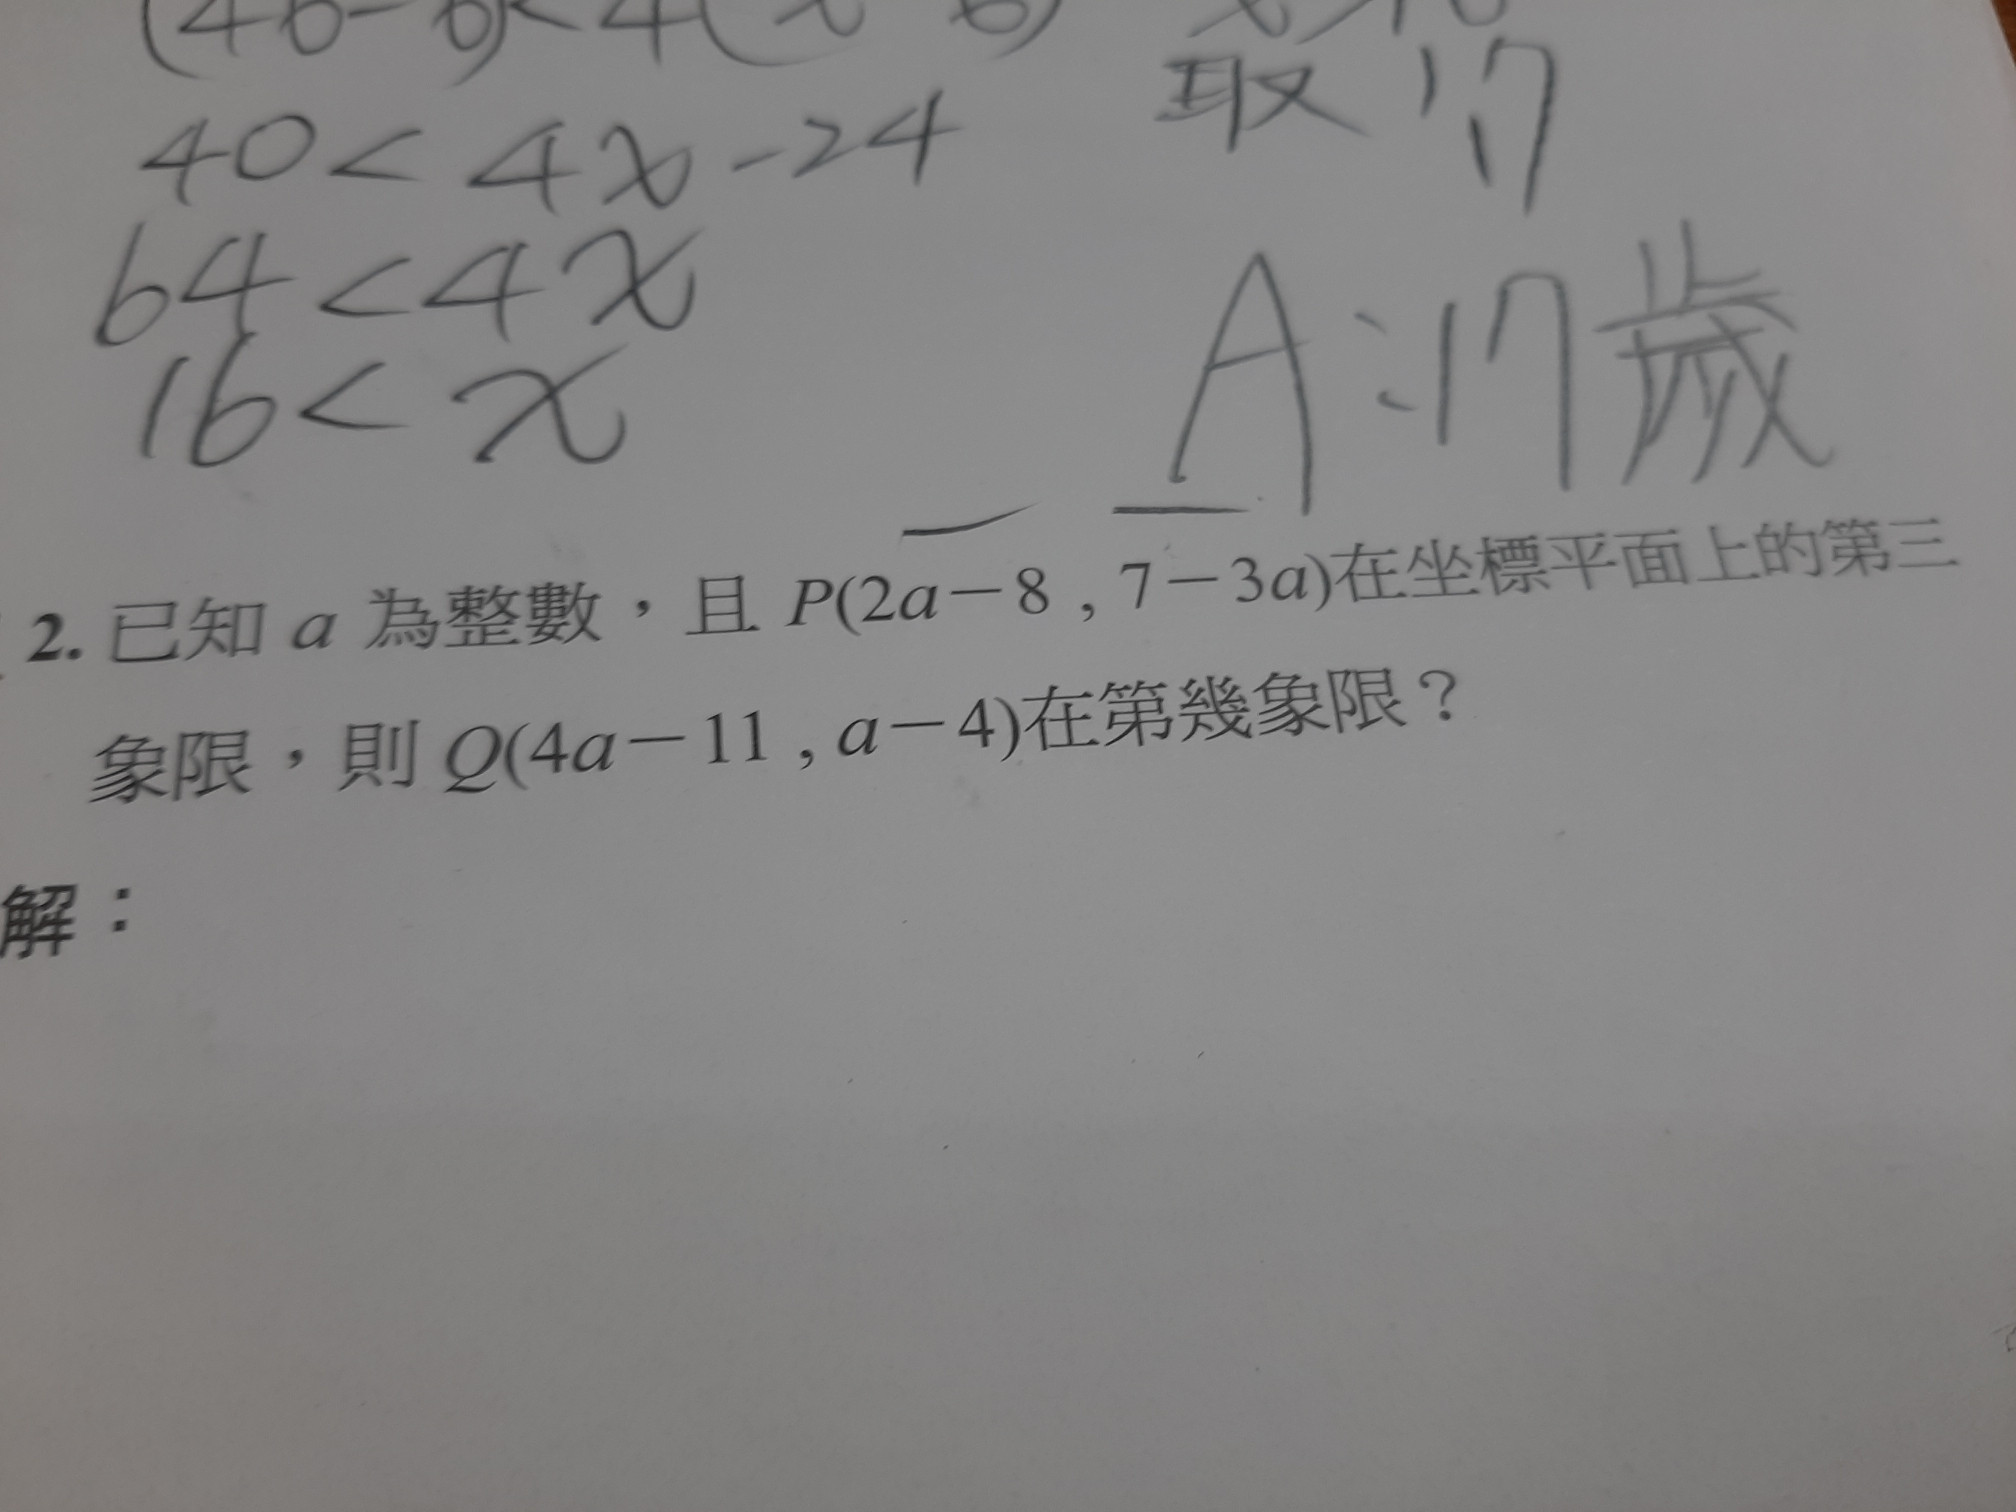 40<4x-24
64<4x
16<x
取17
A:17歲
2. 已知 a 為整數，且 P(2a－8 , 7－3a)在坐標平面上的第三
象限，則 Q(4a－11 , a－4)在第幾象限？
解：